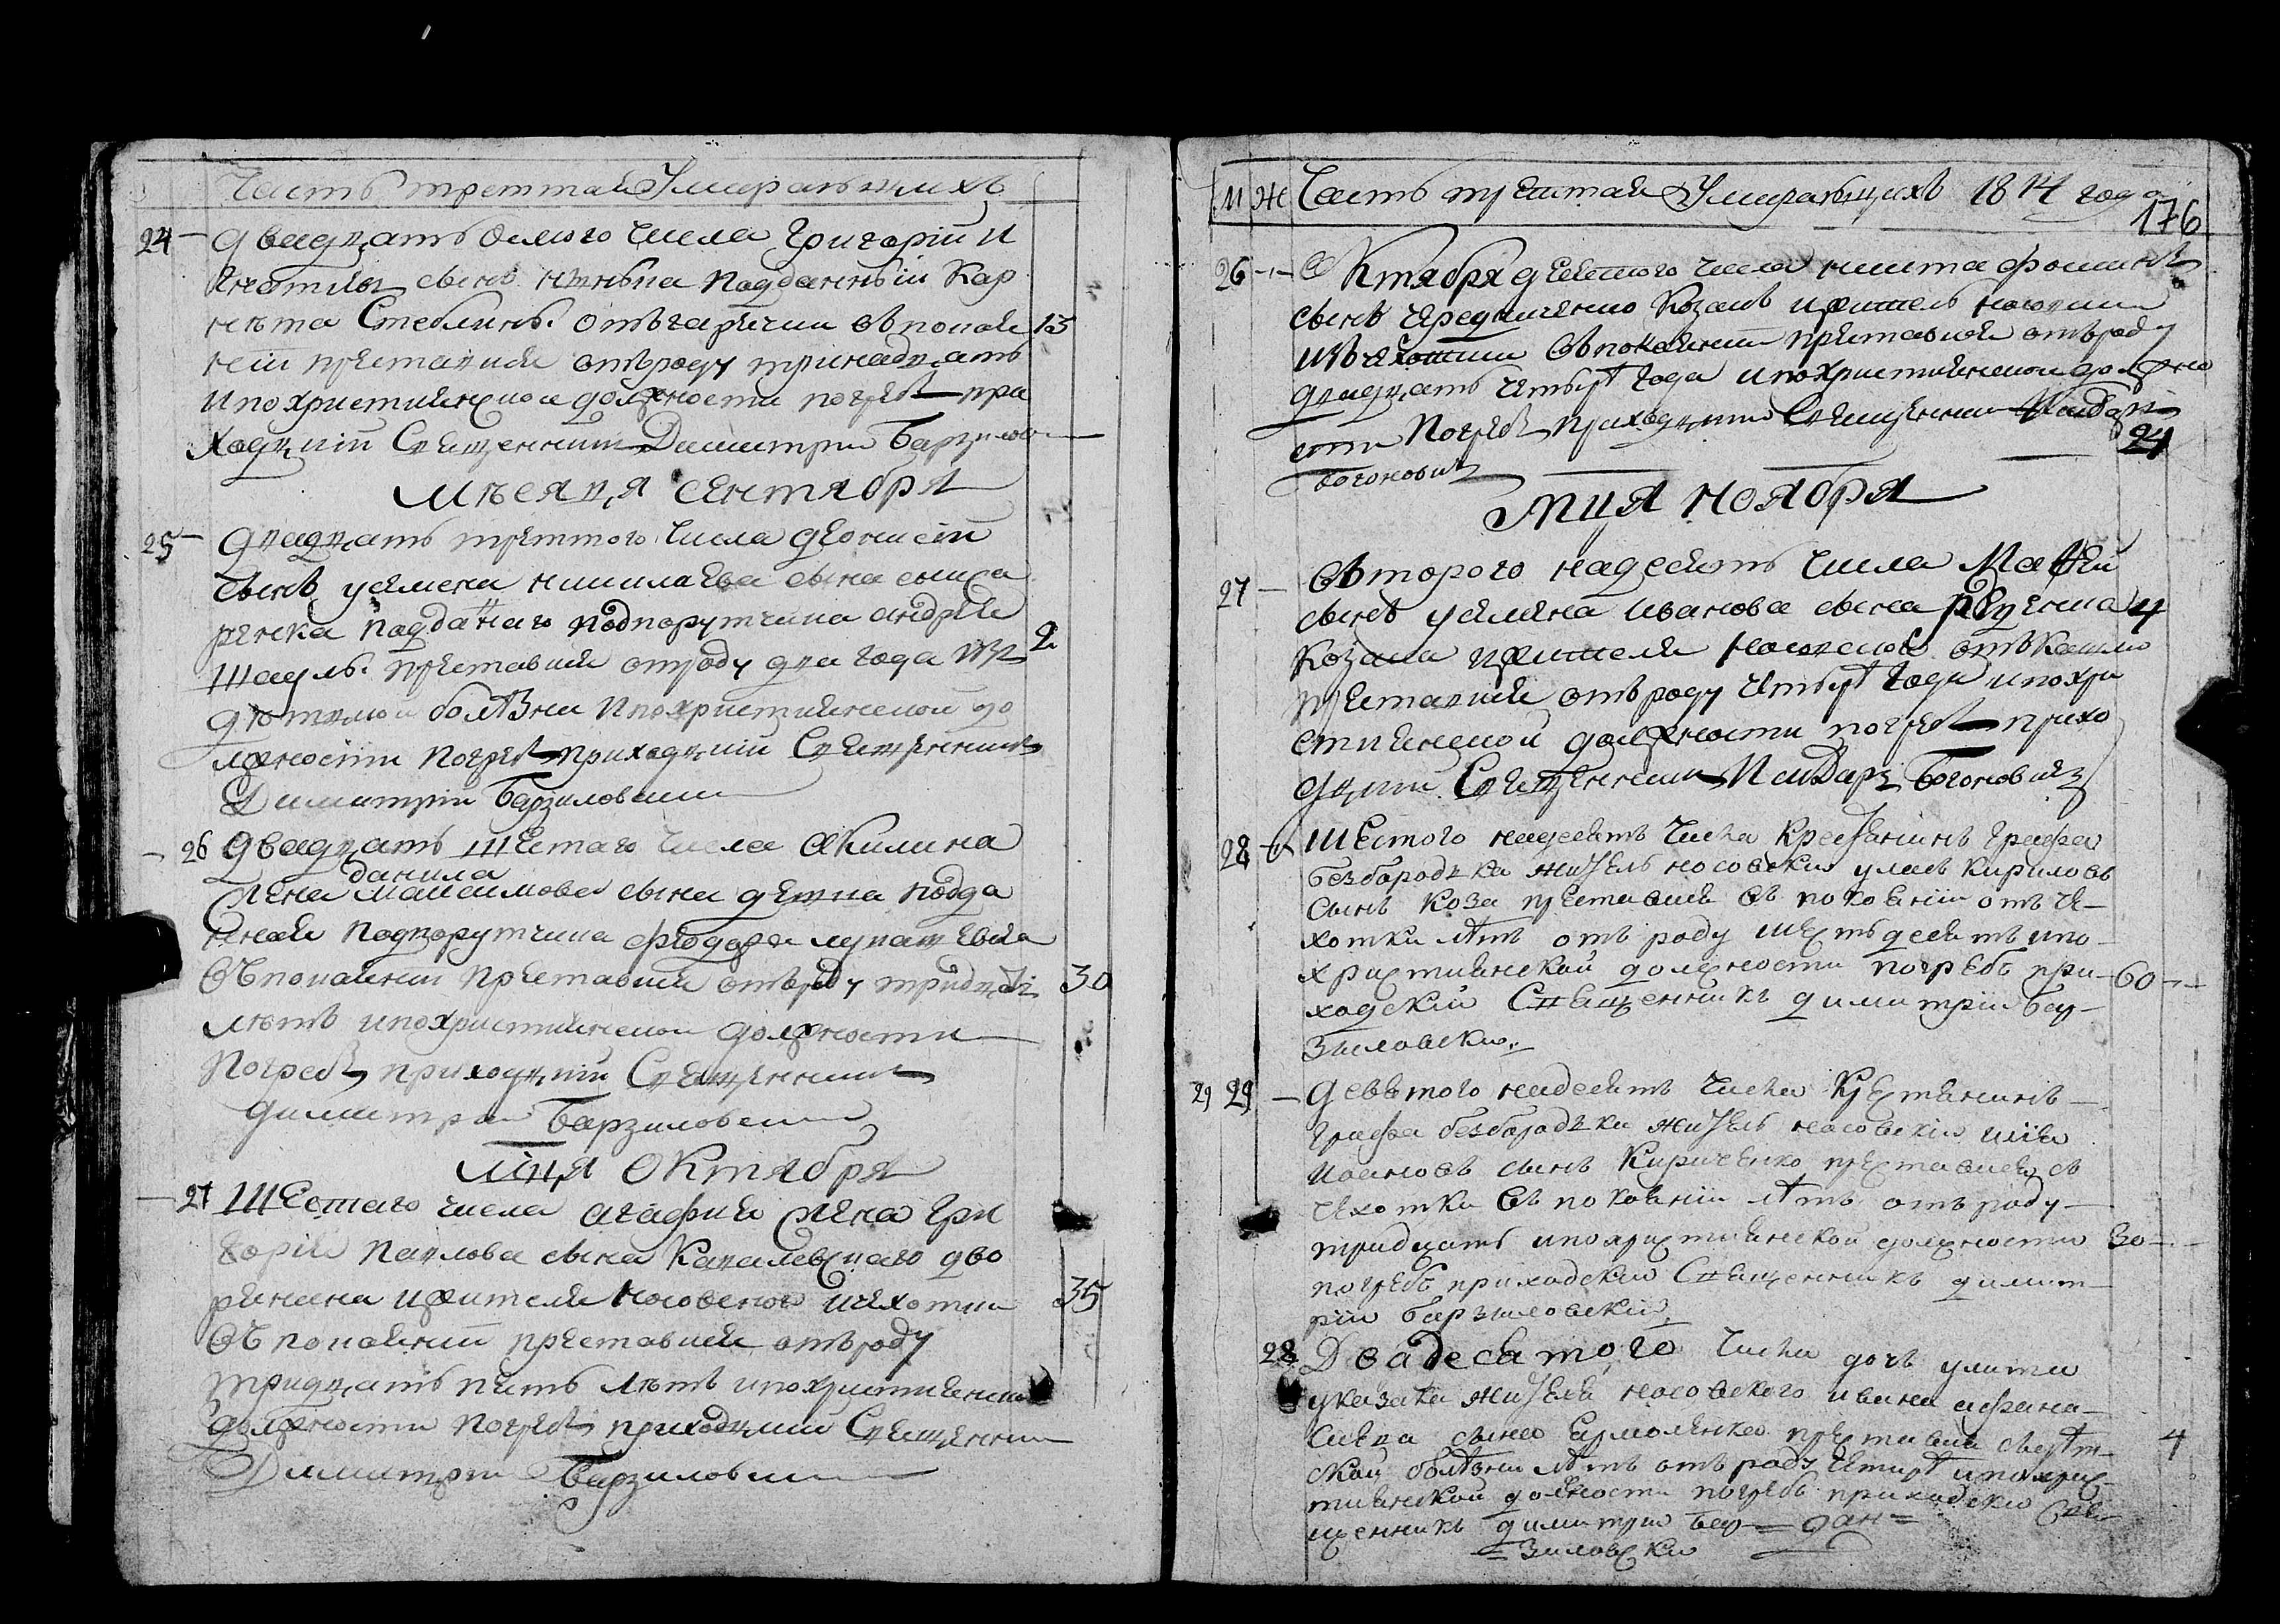 Часть треттая Умиравшихъ
24 – Двадцать осмого числа Григорій И
сынъ подданный Кор
нѣта Стеблинъ. отъ гарячки въ покая
ніи преставися отъ роду тринадцать 13
и по християнской должности погребъ при
ходцкій Священникъ Димитрій Барзиловски
Мѣсяця сентября
25 – Двадцать треттого числа Деонисій
сынъ усямена николаева сына
ренка подданаго подпорутчика андрея
преставися отроду два года 2
дѣтской болѣзни и по християнской до
лжности погребъ приходцкій Священникъ
Димитрій Барзиловски
– 26 Двадцать шестаго числа Акилина
данила
жена максимова сына подда
ная подпорутчика фіодора
въ покаянии преставися отъ роду тридцать 30
лѣтъ и по християнской должности
погребъ приходцкій Священникъ
Димитри Барзиловски
мця Октября
– 27 Шестаго числа агафия жена Гри
горія павлова сына Ковалевскаго дво
ренина жителя носовского ичехотки 35
въ покаянии преставися отъ роду
тридцать пять лѣтъ и по християнско
должности погребъ приходцкий Священни
Димитри Барзиловски
М Ж Часть третая Умиравщихъ 1814 года
176
26 – Октября девятого числа никита фоминъ
сынъ Чередниченко козакъ и житель носовки
въ покаянии преставися отъ роду
двадцать четыре года и по християнской должно
сти погребъ приходцкий Священникъ 24
Богоновичъ
мця ноября
27 – Второго надесять числа Матѳей
сынъ усямена иванова сына 4
козака жителя носовского отъ кашлю
преставися отъ роду четыре года и по хри
стиянской должности погребъ прихо
дцкий Священникъ Богоновичъ
28 – Шестого надесять числа крестянинъ Графа
безбородька житель носовский улась кириловъ
сынъ коза преставися въ покоянии отъ че–
хотки лѣтъ отъ роду шестьдесятъ и по–
християнской должности погребъ при– 60
ходский Священникъ димитрий бар–
зиловский.
29 29 – Девятого надесять числа крестянинъ –
Графа безбородька житель носовский
ивановъ сынъ Кириченко преставися съ
чехотки въ покоянии лѣтъ отъ роду –
тридцать и по християнской должности 30
погребъ приходский Священникъ димит–
рии барзиловский
28 Двадесятого числа дочъ улита
указака жителя носовского ивана афана–
сиева сына Ермоленка преставися 4
ской болѣзни лѣтъ отъ роду четире и по хрис–
тиянской должности погребъ приходский Свя–
щенникъ димитрии бар=
= зиловски